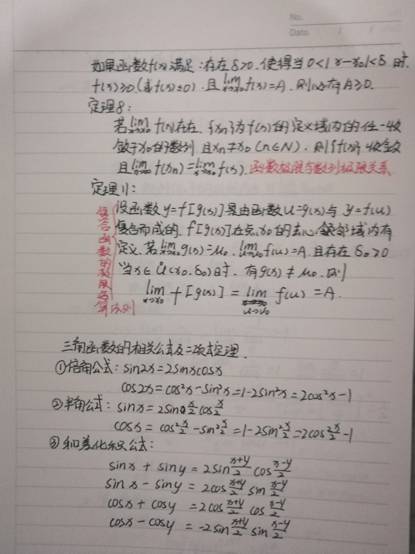 No.
Date
如果函数f(x)满足:存在δ>0,使得当0<|x-x₀|<δ时,
f(x)≥0(或f(x)>0),且lim x→x₀ f(x)=A,则必有A≥0.
定理8:
若lim x→x₀ f(x)存在,{xn}为f(x)的定义域内的任一收
敛于x₀的数列,且xn≠x₀(n∈N),则{f(xn)}收敛
且lim f(xn)=lim x→x₀ f(x). 函数极限与数列极限关系
定理11:
设函数y=f[g(x)]是由函数u=g(x)与y=f(u)
复合而成的,f[g(x)]在点x₀的去心邻域内有
定义,若lim x→x₀ g(x)=u₀,lim f(u)=A,且存在δ₀>0
当x∈Ů(x₀,δ₀)时,有g(x)≠u₀,则
lim x→x₀ f[g(x)]=lim u→u₀ f(u)=A.
复合函数的极限运算法则
三角函数的相关公式及二次式定理
①倍角公式:sin2x=2sinxcosx
cos2x=cos²x-sin²x=1-2sin²x=2cos²x-1
②半角公式:sinx=2sin x/2 cos x/2
cosx=cos² x/2-sin² x/2=1-2sin² x/2=2cos² x/2-1
③和差化积公式:
sinx+siny=2sin x+y/2 cos x-y/2
sinx-siny=2cos x+y/2 sin x-y/2
cosx+cosy=2cos x+y/2 cos x-y/2
cosx-cosy=-2sin x+y/2 sin x-y/2